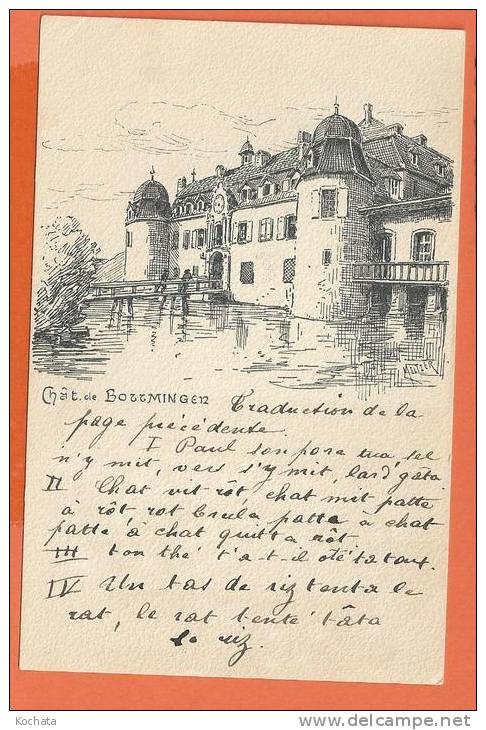 MELZER
Chât. de BOTTMINGEN
Traduction de la
page précédente.
I Paul son porc tua, sel
n'y mit, vers s'y mit, lard gâta
II Chat vit rôt, chat mit patte
à rôt, rot brula patte à chat
patte à chat quitta rôt.
III ton thé t'a-t-il ôté ta toux.
IV Un tas de riz tenta le
rat, le rat tenté tâta
le riz.
Kochata
www.delcampe.net